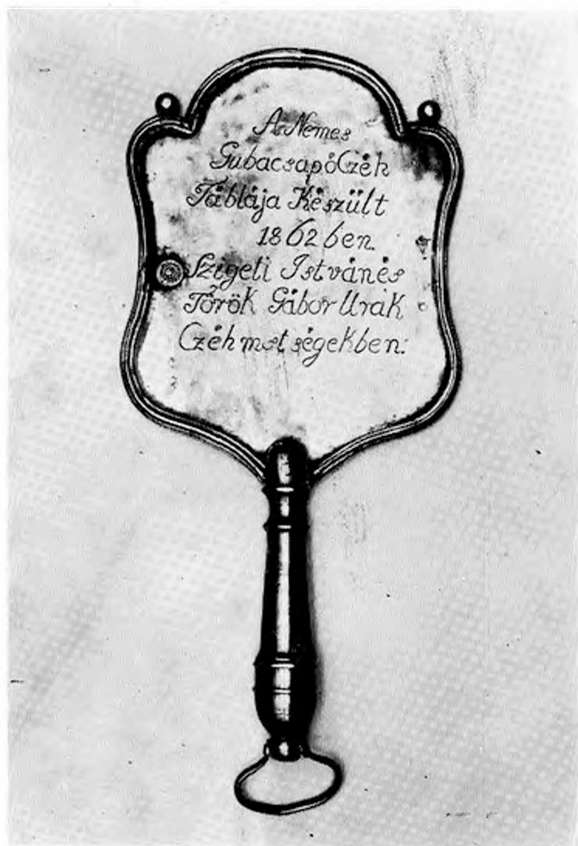 A Nemes
GubacsapóCzéh
Táblája Készült
1862 ben.
Szigeti Istvánés
Török Gábor Urak
Czéh mest ségekben: